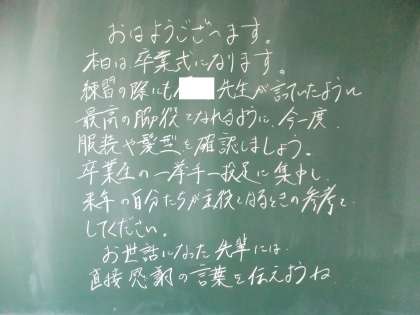 おはようございます。
本日は卒業式になります。
練習の際にも 先生が言っていたように
最高の脇役になれるように、今一度、
服装や髪型を確認しましょう。
卒業生の一挙手一投足に集中し、
来年の自分たちが主役となるときの参考に
してください。
お世話になった先輩には
直接感謝の言葉を伝えようね